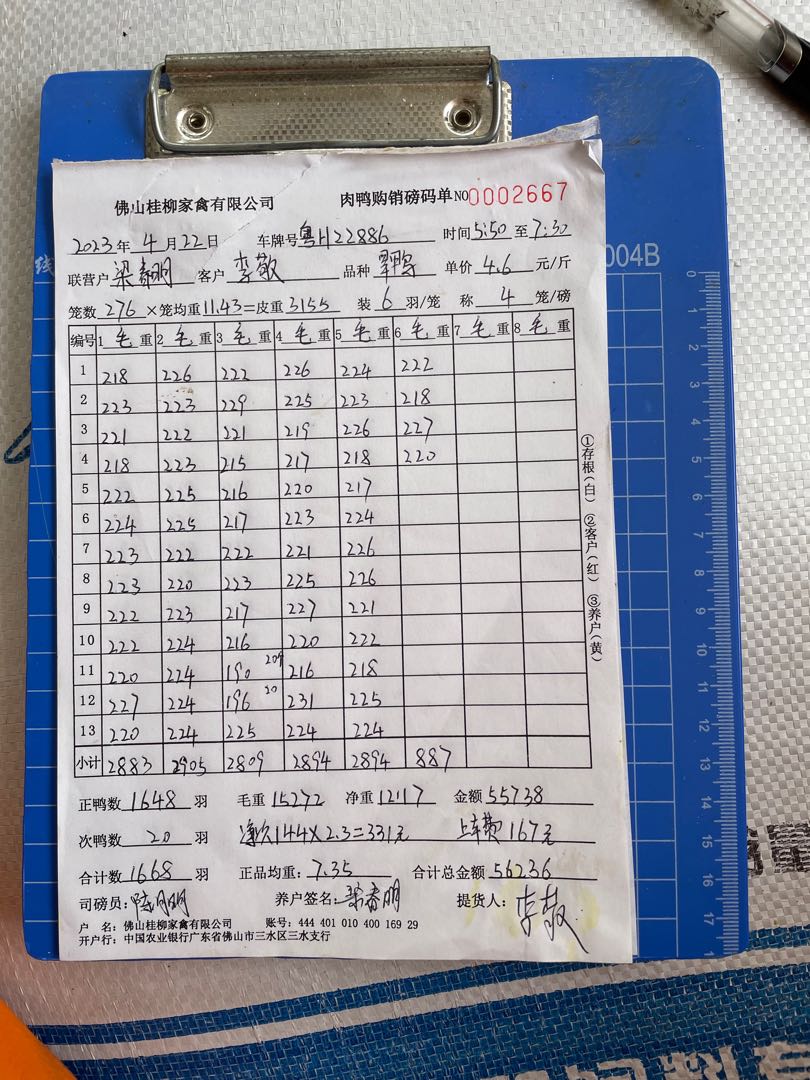 佛山桂柳家禽有限公司 肉鸭购销磅码单 NO 0002667
2023年 4月22日 车牌号 粤H22886 时间 5:50 至 7:30
联营户 梁春明 客户 李敬 品种 单价 4.6 元/斤
笼数 276 ×笼均重 11.43=皮重 3155 装 6 羽/笼 称 4 笼/磅
编号 1毛重 2毛重 3毛重 4毛重 5毛重 6毛重 7毛重 8毛重
1 218 226 222 226 224 222
2 223 223 229 225 223 218
3 221 222 221 219 226 227
4 218 223 215 217 218 220
5 222 225 216 220 217
6 224 225 217 223 224
7 223 222 222 221 226
8 223 220 223 225 226
9 222 223 217 227 221
10 222 224 216 220 222
11 220 224 190 209 216 218
12 227 224 196 20 231 225
13 220 224 225 224 224
小计 2883 2905 2809 2894 2894 887
正鸭数 1648 羽 毛重 15272 净重 12117 金额 55738
次鸭数 20 羽 144×2.3=331元 上车费 167元
合计数 1668 羽 正品均重: 7.35 合计总金额 56236
司磅员: 养户签名: 梁春明 提货人: 李敬
户 名: 佛山桂柳家禽有限公司 账号: 444 401 010 400 169 29
开户行: 中国农业银行广东省佛山市三水区三水支行
①存根(白) ②客户(红) ③养户(黄)
004B
0 1 2 3 4 5 6 7 8 9 10 11 12 13 14 15 16 17